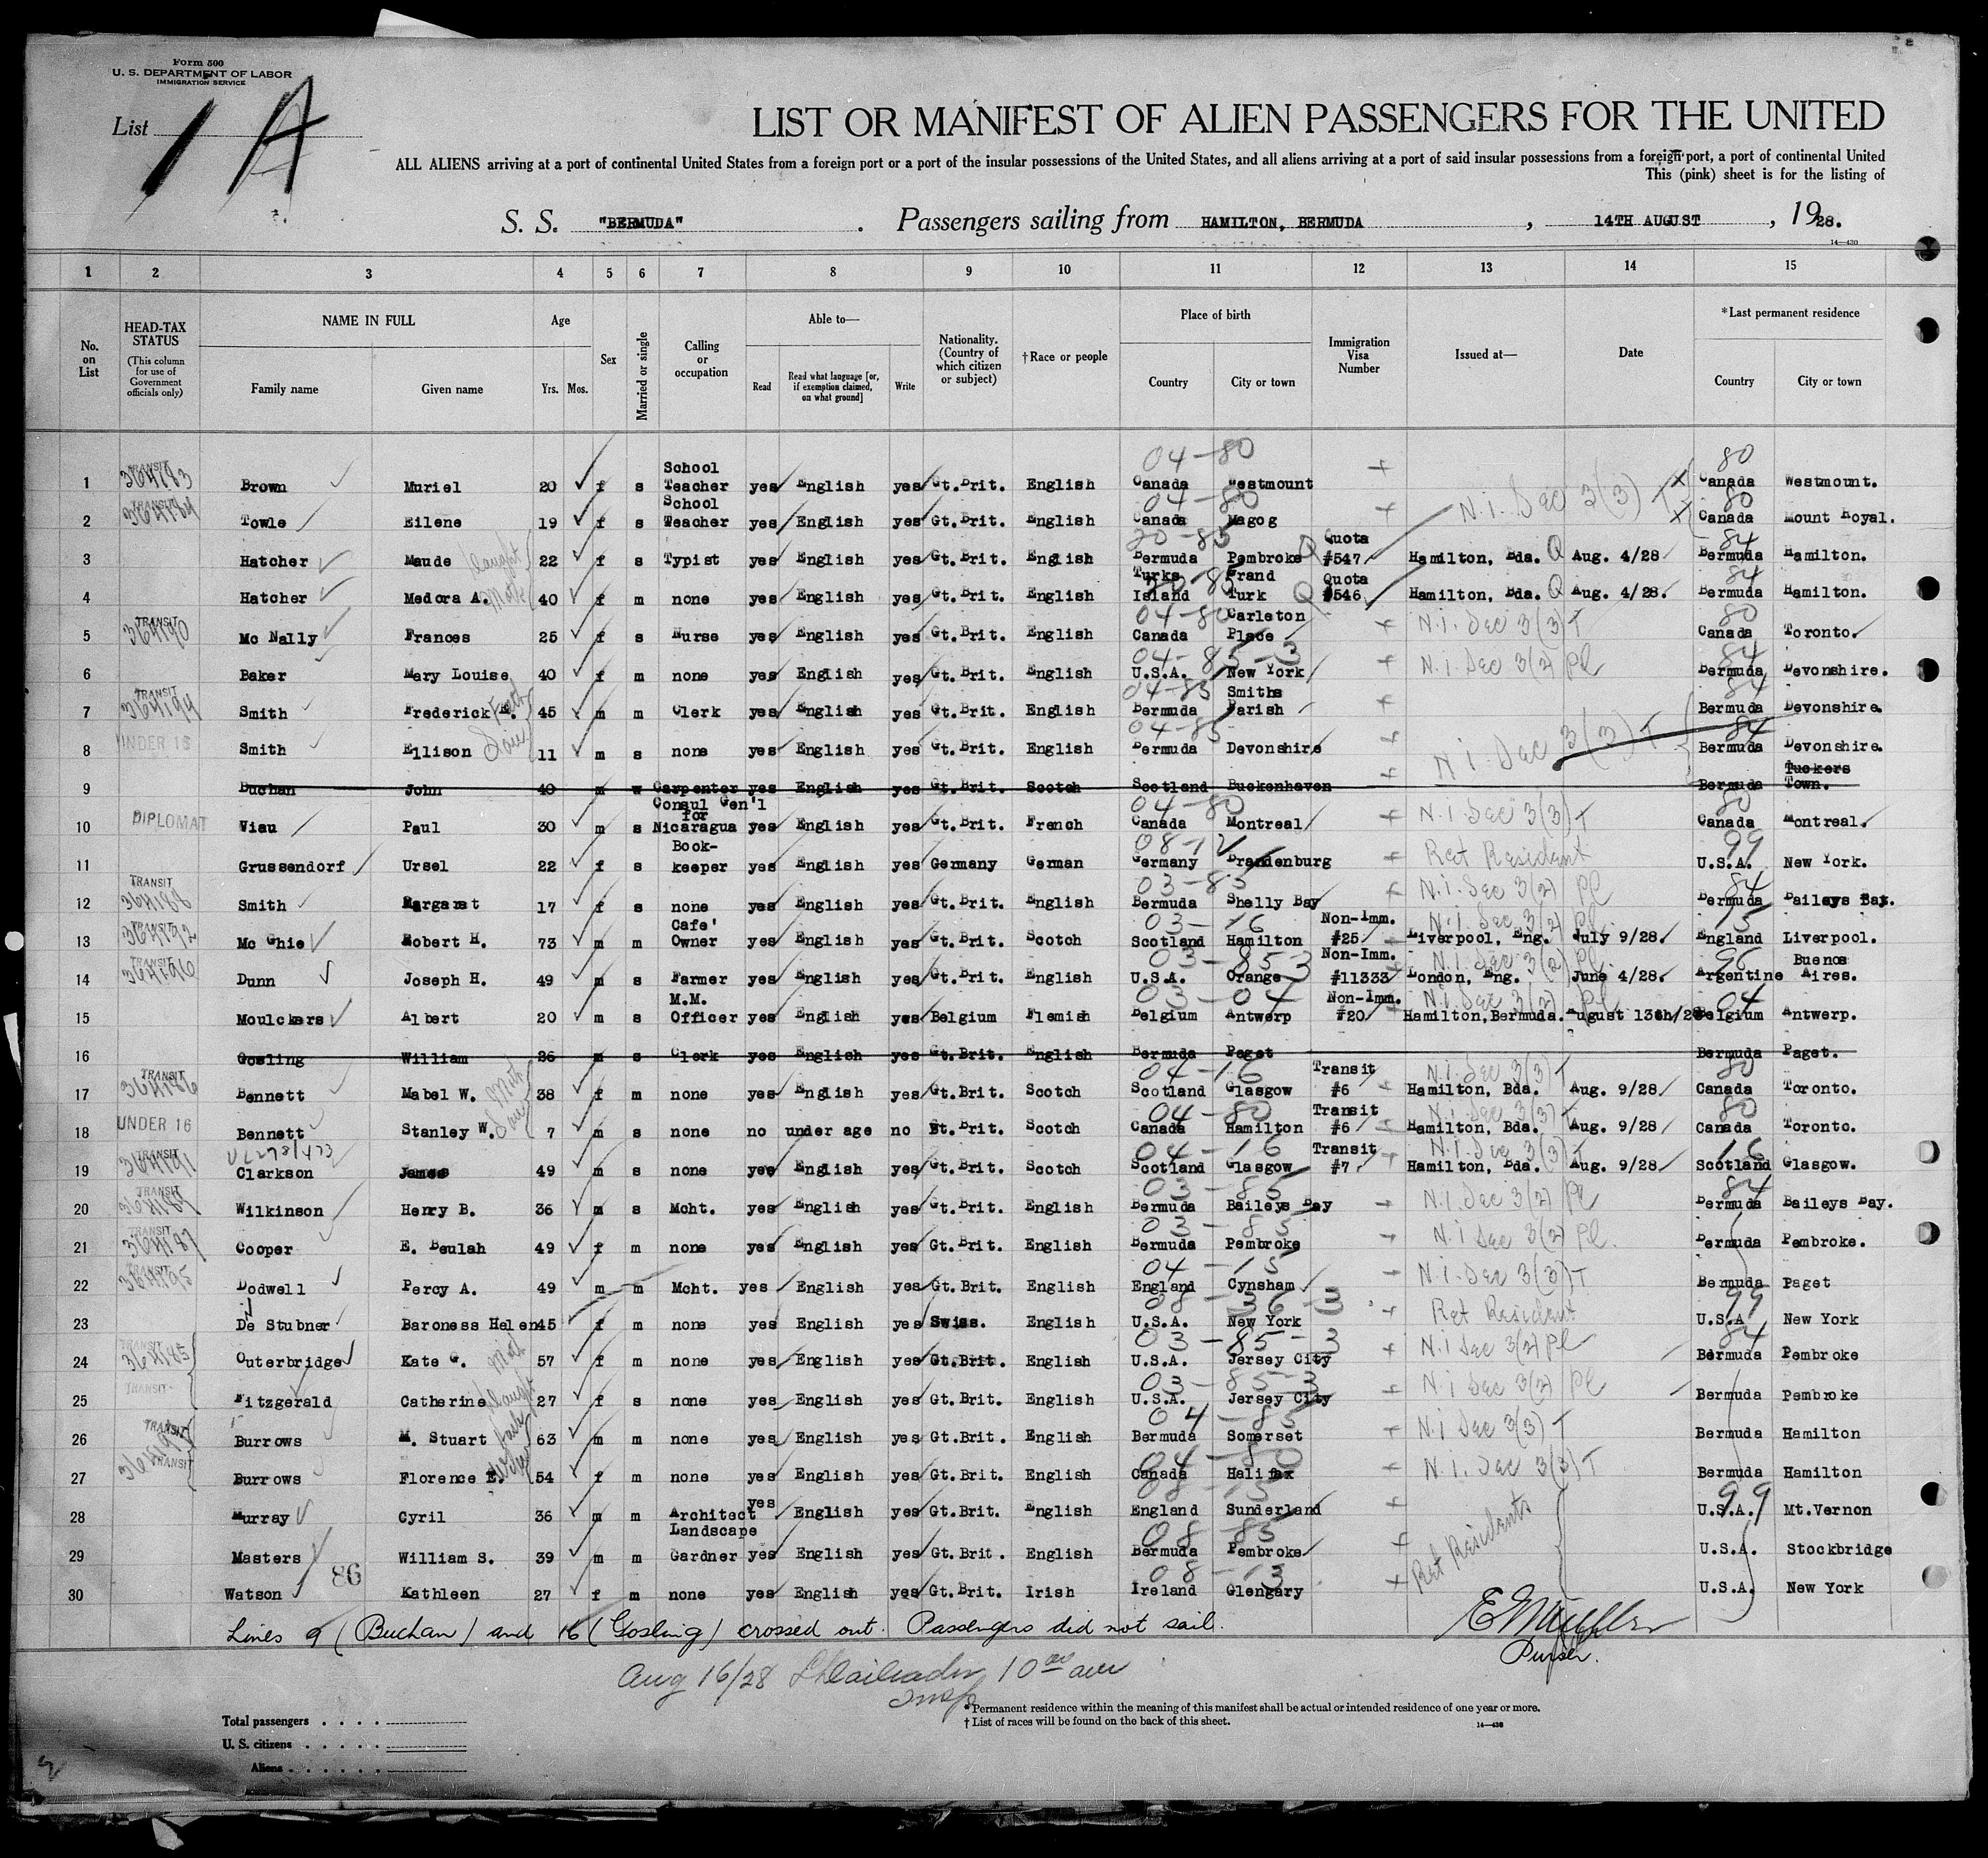 Form 500
U. S. DEPARTMENT OF LABOR
IMMIGRATION SERVICE
List 1 A
LIST OR MANIFEST OF ALIEN PASSENGERS FOR THE UNITED
ALL ALIENS arriving at a port of continental United States from a foreign port or a port of the insular possessions of the United States, and all aliens arriving at a port of said insular possessions from a foreign port, a port of continental United
This (pink) sheet is for the listing of
S. S. "BERMUDA". Passengers sailing from HAMILTON, BERMUDA, 14TH AUGUST, 1928.
14—430
1 2 3 4 5 6 7 8 9 10 11 12 13 14 15
No. on List
HEAD-TAX STATUS (This column for use of Government officials only)
NAME IN FULL Family name Given name
Age Yrs. Mos.
Sex
Married or single
Calling or occupation
Able to— Read Read what language [or, if exemption claimed, on what ground] Write
Nationality. (Country of which citizen or subject)
†Race or people
Place of birth Country City or town
Immigration Visa Number
Issued at—
Date
*Last permanent residence Country City or town
1 TRANSIT 364183 Brown Muriel 20 f s School Teacher yes English yes Gt.Brit. English 04-80 Canada Westmount N.I. Sec 3(3) T 80 Canada Westmount.
2 TRANSIT Towle Eilene 19 f s School Teacher yes English yes Gt.Brit. English 04-80 Canada Magog 80 Canada Mount Royal.
3 Hatcher Maude Daught 22 f s Typist yes English yes Gt.Brit. English 20-85 Bermuda Pembroke Q Quota #547 Hamilton, Bda. Q Aug. 4/28 84 Bermuda Hamilton.
4 Hatcher Medora A. Moth 40 f m none yes English yes Gt.Brit. English Turks Island Grand Turk Q Quota #546 Hamilton, Bda. Q Aug. 4/28. 84 Bermuda Hamilton.
5 TRANSIT 364190 Mc Nally Frances 25 f s Nurse yes English yes Gt.Brit. English 04-80 Canada Carleton Place N.I. Sec 3(3) T 80 Canada Toronto.
6 Baker Mary Louise 40 f m none yes English yes Gt.Brit. English 04-85-3 U.S.A. New York N.I. Sec 3(2) Pl 84 Bermuda Devonshire.
7 TRANSIT 364194 Smith Frederick Fath 45 m m Clerk yes English yes Gt.Brit. English 04-85 Bermuda Smiths Parish 84 Bermuda Devonshire.
8 UNDER 16 Smith Ellison Son 11 m s none yes English yes Gt.Brit. English 04-85 Bermuda Devonshire N.I. Sec 3(3) T 84 Bermuda Devonshire.
9 Buchan John 40 m w Carpenter yes English yes Gt.Brit. Scotch Scotland Buckenhaven Bermuda Tuckers Town.
10 DIPLOMAT Viau Paul 30 m s Consul Gen'l for Nicaragua yes English yes Gt.Brit. French 04-80 Canada Montreal N.I. Sec 3(3) T 80 Canada Montreal.
11 Grussendorf Ursel 22 f s Book-keeper yes English yes Germany German 08-12 Germany Brandenburg Ret Resident 99 U.S.A. New York.
12 TRANSIT 364188 Smith Margaret 17 f s none yes English yes Gt.Brit. English 03-85 Bermuda Shelly Bay N.I. Sec 3(2) Pl 84 Bermuda Baileys Bay.
13 TRANSIT 364192 Mc Ghie Robert H. 73 m m Cafe' Owner yes English yes Gt.Brit. Scotch 03-16 Scotland Hamilton Non-Imm. #25 N.I. Sec 3(2) Pl Liverpool, Eng. July 9/28. 15 England Liverpool.
14 TRANSIT 364196 Dunn Joseph H. 49 m s Farmer yes English yes Gt.Brit. English 03-85-3 U.S.A. Orange Non-Imm. #11333 N.I. Sec 3(2) Pl London, Eng. June 4/28. 96 Argentine Buenos Aires.
15 Moulckers Albert 20 m s M.M. Officer yes English yes Belgium Flemish 03-04 Belgium Antwerp Non-Imm. #20 N.I. Sec 3(2) Pl Hamilton,Bermuda. August 13th/28 04 Belgium Antwerp.
16 Gosling William 26 m s Clerk yes English yes Gt.Brit. English Bermuda Paget Bermuda Paget.
17 TRANSIT 364186 Bennett Mabel W. Moth 38 f m none yes English yes Gt.Brit. Scotch 04-16 Scotland Glasgow Transit #6 N.I. Sec 3(3) T Hamilton, Bda. Aug. 9/28 80 Canada Toronto.
18 UNDER 16 Bennett Stanley W. Son 7 m s none no under age no Gt.Brit. Scotch 04-80 Canada Hamilton Transit #6 N.I. Sec 3(3) T Hamilton, Bda. Aug. 9/28 80 Canada Toronto.
19 TRANSIT 364191 Clarkson James 49 m s none yes English yes Gt.Brit. Scotch 04-16 Scotland Glasgow Transit #7 N.I. Sec 3(3) T Hamilton, Bda. Aug. 9/28 16 Scotland Glasgow.
20 TRANSIT 364189 Wilkinson Henry B. 36 m s Mcht. yes English yes Gt.Brit. English 03-85 Bermuda Baileys Bay N.I. Sec 3(2) Pl 84 Bermuda Baileys Bay.
21 TRANSIT 364187 Cooper E. Beulah 49 f m none yes English yes Gt.Brit. English 03-85 Bermuda Pembroke N.I Sec 3(2) Pl. Bermuda Pembroke.
22 TRANSIT 364195 Dodwell Percy A. 49 m m Mcht. yes English yes Gt.Brit. English 04-15 England Cynsham N.I. Sec 3(3) T Bermuda Paget
23 De Stubner Baroness Helen 45 f m none yes English yes Swiss. English 08-36-3 U.S.A. New York Ret Resident 99 U.S.A New York
24 TRANSIT 364185 Outerbridge Kate G. Moth 57 f m none yes English yes Gt.Brit. English 03-85-3 U.S.A. Jersey City N.I Sec 3(2) Pl 84 Bermuda Pembroke
25 TRANSIT Fitzgerald Catherine Daught 27 f s none yes English yes Gt.Brit. English 03-85-3 U.S.A. Jersey City N.I Sec 3(2) Pl Bermuda Pembroke
26 TRANSIT Burrows M. Stuart 63 m m none yes English yes Gt.Brit. English 04-85 Bermuda Somerset N.I Sec 3(3) T Bermuda Hamilton
27 TRANSIT Burrows Florence E. 54 f m none yes English yes Gt.Brit. English 04-80 Canada Halifax N.I. Sec 3(3) T Bermuda Hamilton
28 Murray Cyril 36 m m Architect yes English yes Gt.Brit. English 08-15 England Sunderland 99 U.S.A. Mt.Vernon
29 Masters William S. 39 m m Landscape Gardner yes English yes Gt.Brit. English 08-85 Bermuda Pembroke Ret Residents U.S.A. Stockbridge
30 Watson 86 Kathleen 27 f m none yes English yes Gt.Brit. Irish 08-13 Ireland Glengary U.S.A. New York
Lines 9 (Buchan) and 16 (Gosling) crossed out. Passengers did not sail.
Purser.
Aug 16/28 10 00 am
Insp
*Permanent residence within the meaning of this manifest shall be actual or intended residence of one year or more.
†List of races will be found on the back of this sheet.
14—430
Total passengers
U. S. citizens
Aliens